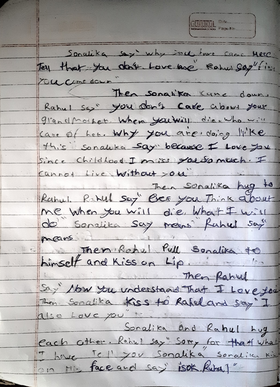 Sonalika say" why you have came here
Tell that you don't Love me" Rahul say" first
you came down
Then Sonalika came down
Rahul say" you don't care about your
grandmother when you will die who will
care of her. why you are doing like
this" Sonalika say" because I love you
since Childhood I miss you so much. I
cannot Live without you"
Then Sonalika hug to
Rahul. Rahul say" you Think about
me when you will die. What I will
do" Sonalika say means" Rahul say"
means
Then Rahul Pull Sonalika to
himself and Kiss on Lip.
Then Rahul
say" Now you understand That I Love you
Then Sonalika Kiss to Rahul and say" I
also Love you"
Sonalika and Rahul hug
each other. Rahul say" Sorry for that what
I have you Sonalika" Sonalika
on his face and say isok Rahul"